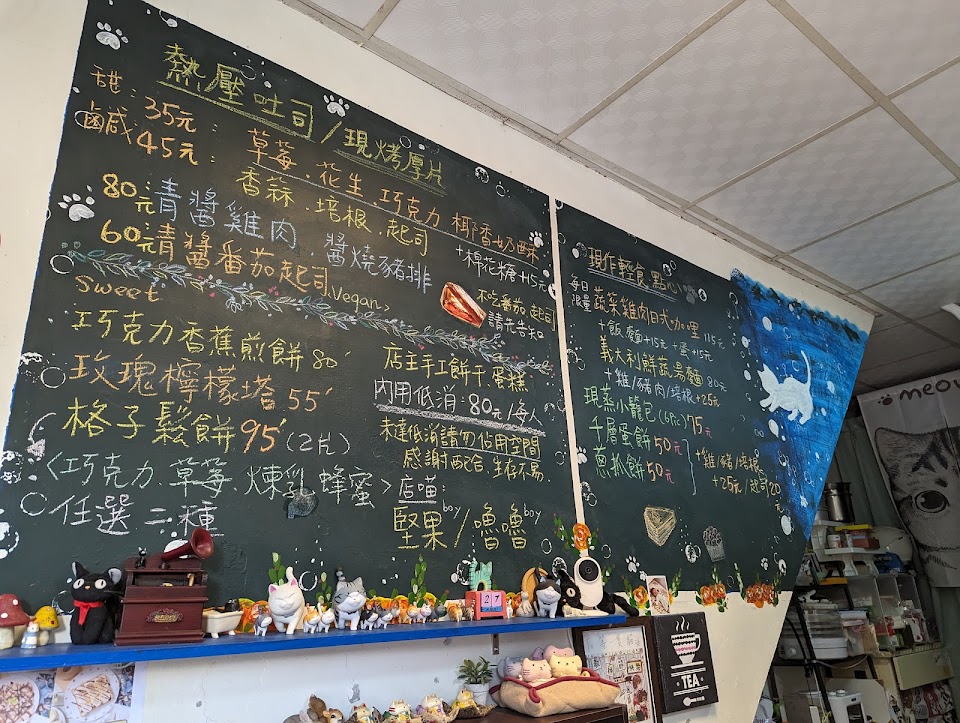 熱壓吐司/現烤厚片
甜:35元: 草莓、花生、巧克力 椰香奶酥
鹹:45元: 香蒜、培根、起司
+棉花糖+15元
80元:青醬雞肉、醬燒豬排
60元:青醬番茄起司 Vegan
不吃番茄、起司
請先告知
Sweet
巧克力香蕉煎餅80
玫瑰檸檬塔55
格子鬆餅95(2片)
<巧克力、草莓、煉乳、蜂蜜>
任選二種
店主手工餅干、蛋糕
內用低消:80元/每人
未達低消請勿佔用空間
感謝配合、生存不易
店喵:
堅果boy/嚕嚕boy
現作輕食點心
每日限量 蔬菜雞肉日式咖哩115元
+飯、麵+15元 +蛋+15元
義大利鮮蔬湯麵80元
+雞/豬肉/培根+25元
現蒸小籠包(6Pic)75元
千層蛋餅50元
蔥抓餅50元
+雞/豬/培根
+25元/起司20元
meow
27
TEA